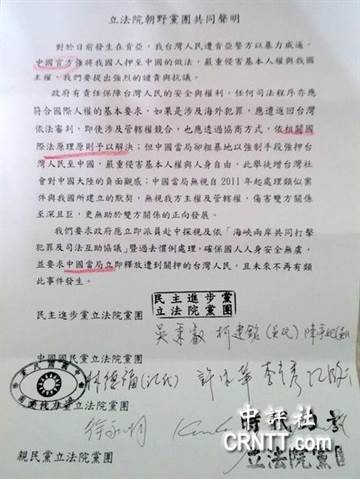 立法院朝野黨團共同聲明
對於目前發生在肯亞,我台灣人民遭肯亞警方以暴力威逼,
中國官方強將我國人押至中國的做法,嚴重侵害基本人權與我國
主權,我們要提出強烈的譴責與抗議。
政府有責任保障台灣人民的安全與權利,任何司法程序亦應
符合國際人權的基本要求,如果是涉及海外犯罪,應遣返回台灣
依法審判,即使涉及管轄權競合,也應透過協商方式,依相關國
際法原理原則予以解決;但中國當局卻粗暴地以強制手段強押台
灣人民至中國,嚴重侵害基本人權與人身自由,此舉徒增台灣社
會對中國大陸的負面觀感;中國當局無視自2011年起處理類似案
件與我國所建立的默契,無視我方主權及管轄權,傷害雙方關係
至深且巨,更無助於雙方關係的正向發展。
我們要求政府應立即派員赴中探視及依「海峽兩岸共同打擊
犯罪及司法互助協議」暨過去慣例處理,確保國人人身安全無虞,
並要求中國當局立即釋放遭到關押的台灣人民,且未來不再有類
此事件發生。
民主進步黨
立法院黨團
民主進步黨立法院黨團
吳秉叡 柯建銘
中國國民黨立法院黨團
林德福
徐永明
時代力量
立法院黨團
親民黨立法院黨團
中評社
CRNTT.com